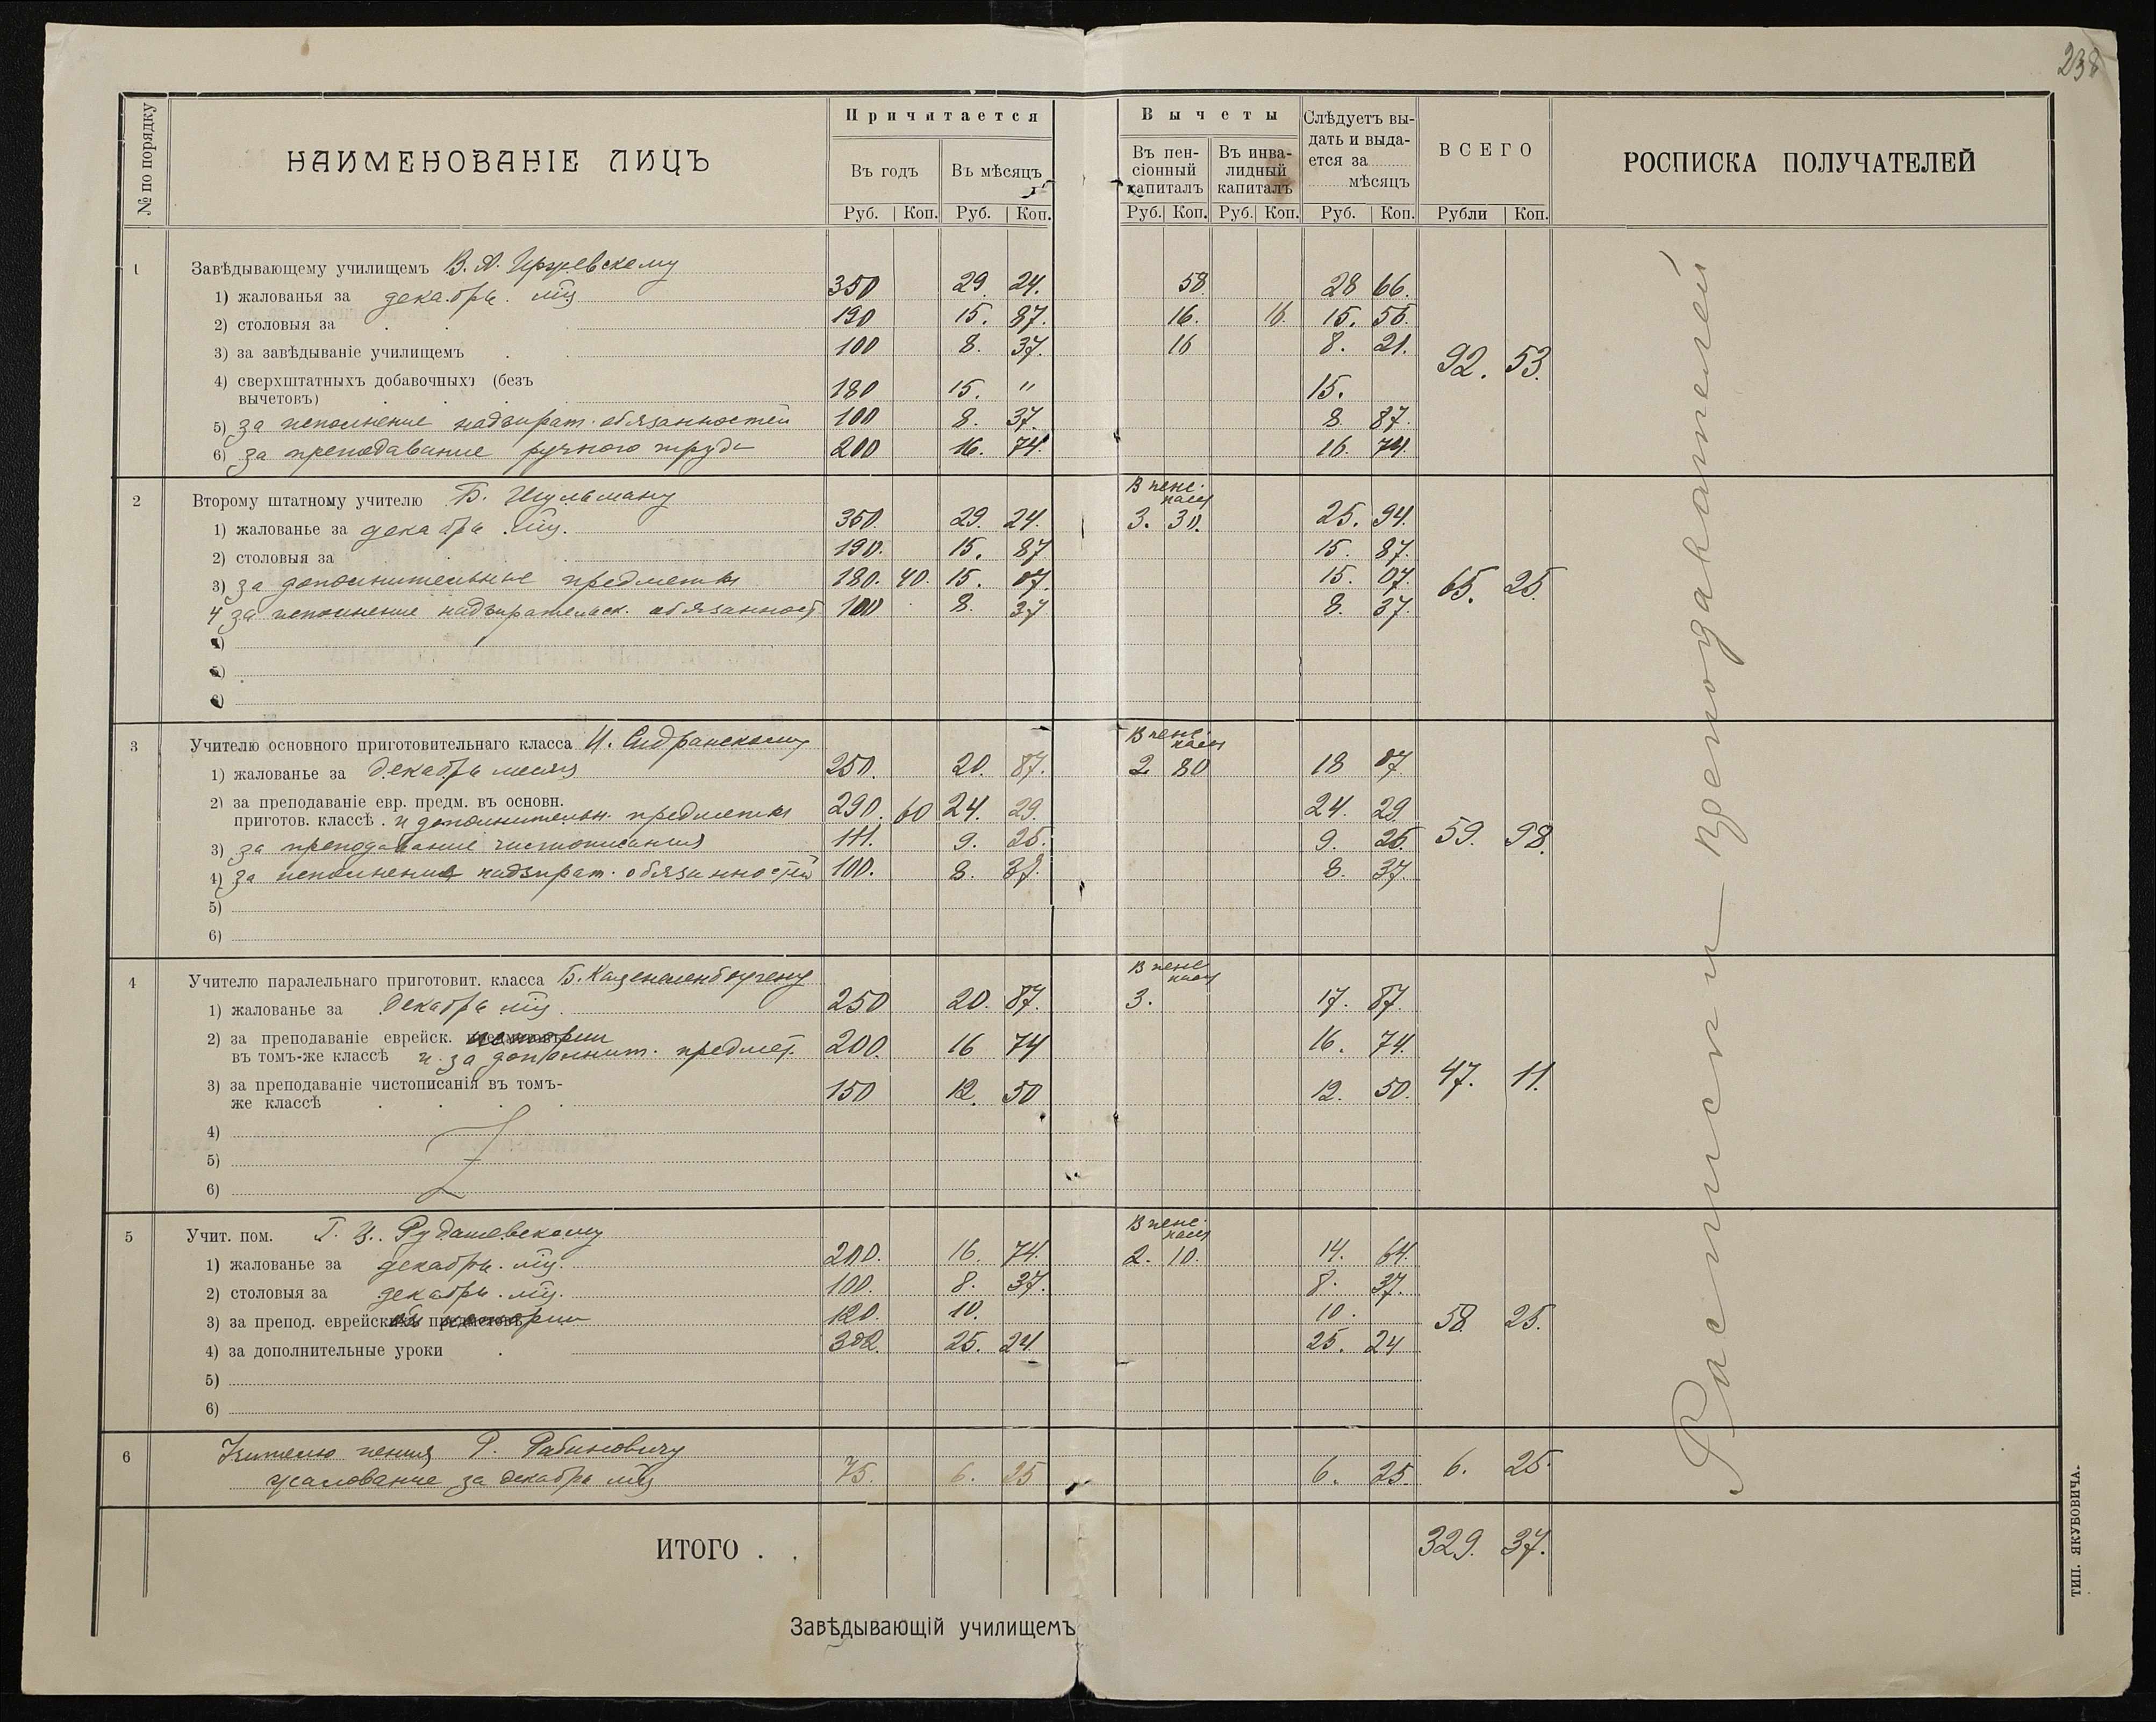 238
№ по порядку
НАИМЕНОВАНІЕ ЛИЦЪ
Причитается
Въ годъ
Въ мѣсяцъ
Руб. Коп. Руб. Коп.
Вычеты
Въ пен-
сіонный
капиталъ
Въ инва-
лидный
капиталъ
Слѣдуетъ вы-
дать и выда-
ется за
мѣсяцъ
ВСЕГО
РОСПИСКА ПОЛУЧАТЕЛЕЙ
Руб. Коп. Руб. Коп. Руб. Коп. Рубли Коп.
1 Завѣдывающему училищемъ В. А.
1) жалованья за декабрь мц 350 29. 24. 58 28 66.
2) столовыя за 190 15. 87. 16. 16. 15. 55.
3) за завѣдываніе училищемъ 100 8. 37. 16 8. 21.
92. 53.
4) сверхштатныхъ добавочныхъ (безъ
вычетовъ) 180 15. " 15.
5) за исполнение надзират. обязанностей 100 8. 37. 8. 87.
6) за преподавание ручного труда 200 16. 74. 16. 74.
2 Второму штатному учителю Б. Шульману
В пенс.
кассу
1) жалованье за декабрь мц. 350. 29. 24. 3. 30. 25. 94.
2) столовыя за 190. 15. 87 15. 87.
3) за дополнительные предметы 180. 40. 15. 07. 15. 07. 65. 25.
4 за исполнение надзирательск. обязанност. 100 8. 37 8. 37.
4)
5)
6)
3 Учителю основного приготовительнаго класса И. Сидранскому
В пенс.
кассу
1) жалованье за декабрь месяц 250. 20. 87. 2 80 18 07.
2) за преподаваніе евр. предм. въ основн.
приготов. классѣ. и дополнительн. предметы 290. 60 24. 29. 24. 29.
3) за преподавание чистописания 111. 9. 25. 9. 25. 59. 98.
4) за исполнения надзират. обязанностей 100. 8. 37. 8. 37.
5)
6)
4 Учителю паралельнаго приготовит. класса Б. Каценеленбогену
В пенс.
кассу
1) жалованье за декабрь мц. 250 20. 87. 3. 17. 87.
2) за преподаваніе еврейск. истории
въ томъ-же классѣ и за дополнит. предмет. 200. 16 74 16. 74.
3) за преподаваніе чистописанія въ томъ-
же классѣ 150 12. 50 12. 50. 47. 11.
4)
5)
6)
5 Учит. пом. Г. Ц. Рудашевскому
В пенс.
кассу
1) жалованье за декабрь мц. 200. 16. 74. 2. 10. 14. 64.
2) столовыя за декабрь мц. 100. 8. 37. 8. 37.
3) за препод. еврейской истории 120. 10. 10. 58. 25.
4) за дополнительные уроки 302. 25. 24. 25. 24
5)
6)
6 Учителю пения Р. Рабиновичу
жалование за декабрь мц 75. 6. 25 6. 25. 6. 25.
ИТОГО . . 329. 37.
Завѣдывающій училищемъ
Росписки преподавателей
ТИП. ЯКУБОВИЧА.